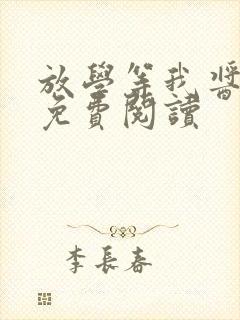 放學等我醬
免費閱讀
李長春